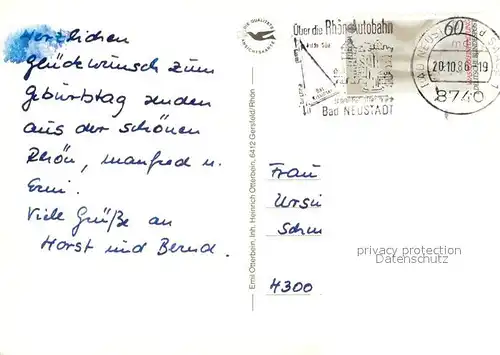 Herzlichen
Glückwunsch zum
Geburtstag senden
aus der schönen
Rhön, Manfred u.
Erni.
Viele Grüße an
Horst und Bernd.
Erni Otterbein, Inh. Heinrich Otterbein, 6412 Gersfeld/Rhön
DIE QUALITÄTS
ANSICHTSKARTE
Über die Rhön-Autobahn
Bad NEUSTADT
60
BAD NEUSTADT
20.10.86-19
8740
Frau
Ursu
Schm
4300
privacy protection
Datenschutz